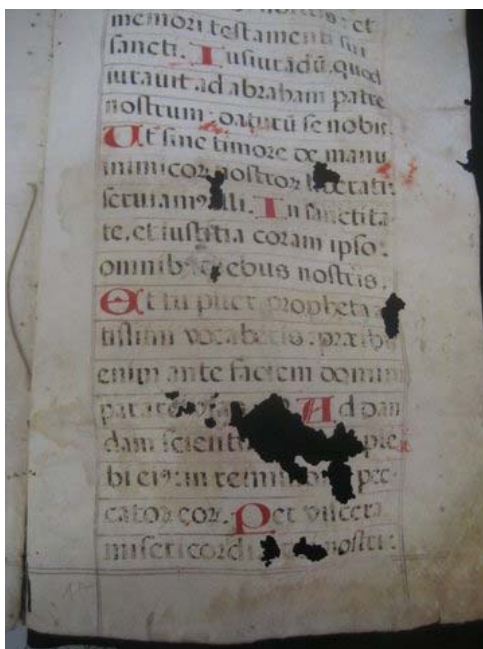 nostris: et
memori testamenti sui
sancti. Iusiurādū. quod
iuravit ad abraham patrē
nostrum: daturū se nobis.
Ut sine timore de manu
inimicoꝝ nostroꝝ liberati:
serviamꝰ illi. In sanctita
te. et iustitia coram ipso:
omnibꝰ diebus nostris.
Et tu puer propheta
tissimi vocaberis: præibis
enim ante faciem domini
parare vias Ad dan
dam scienti ple
bi eiꝰ: in remi pec
catoꝝ eoꝝ. Per viscera
misericordi nostri: